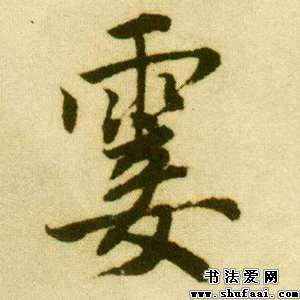 霎
书法爱网
www.shufaai.com